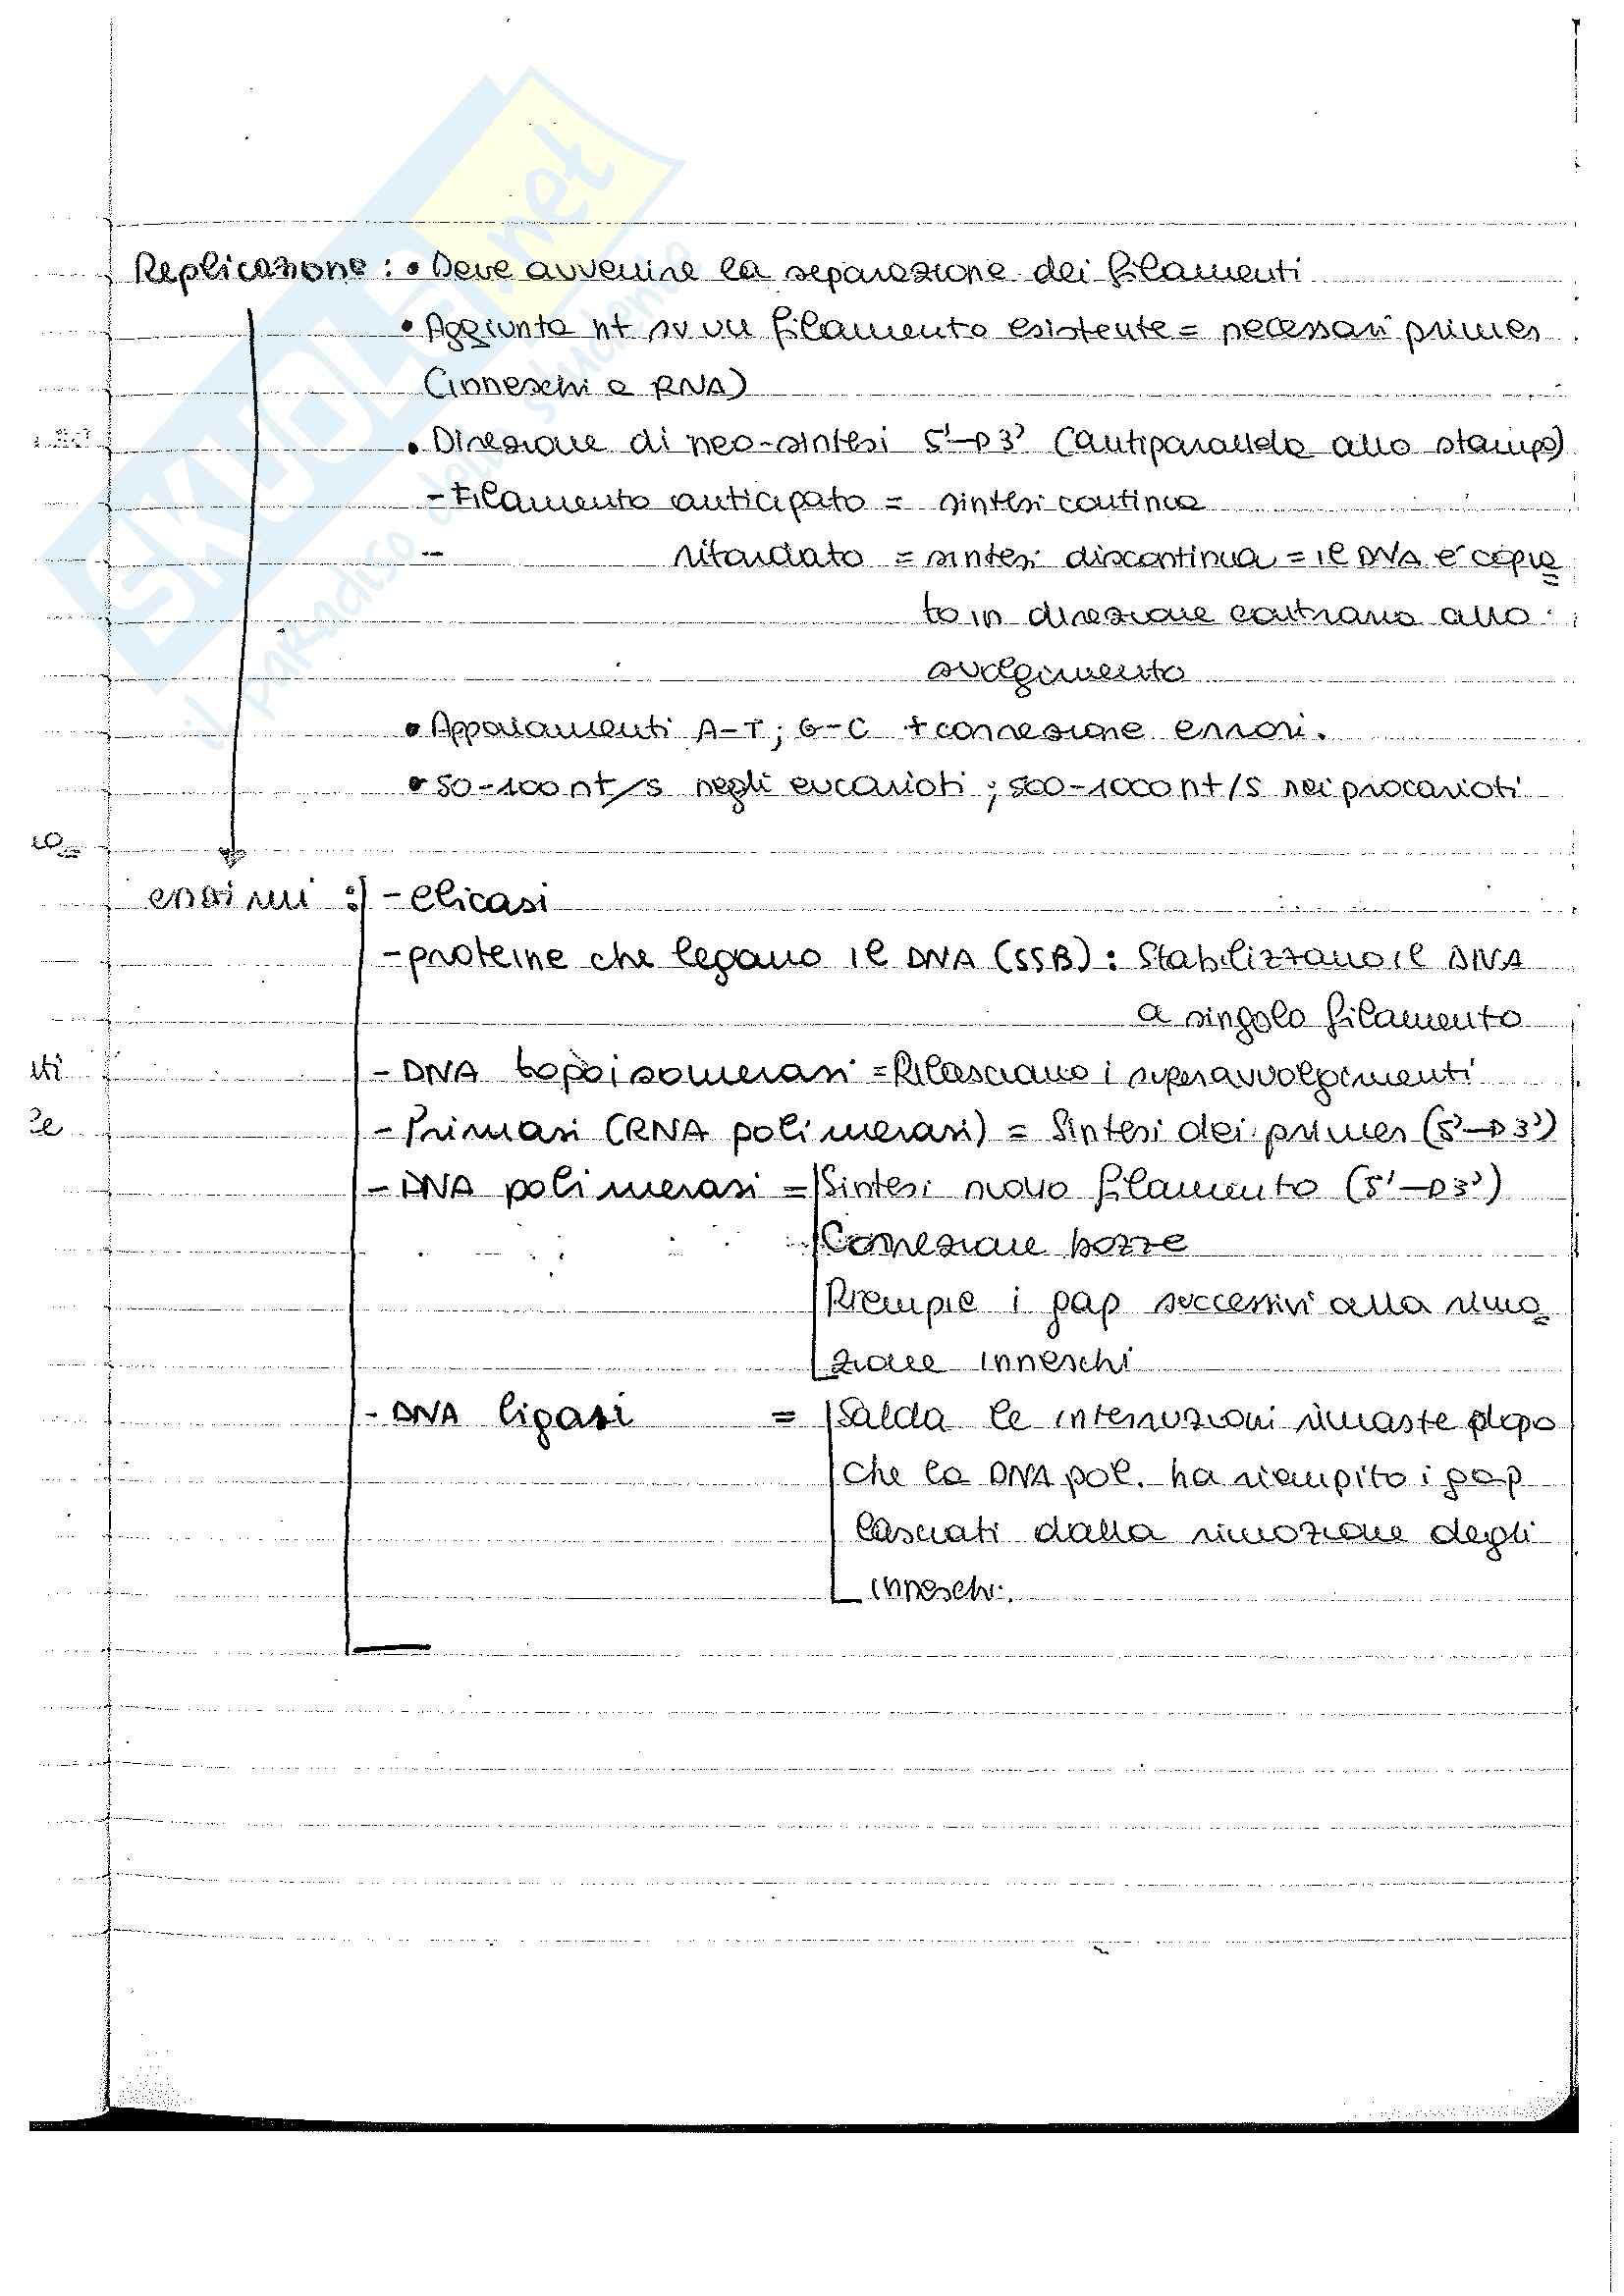 SKUOLA.net
il paradiso dello studente
Replicazione : • Deve avvenire la separazione dei filamenti
• Aggiunta nt su un filamento esistente = necessari primer
(inneschi a RNA)
• Direzione di neo-sintesi 5'→3' (antiparallela allo stampo)
- Filamento anticipato = sintesi continua
- ritardato = sintesi discontinua = il DNA è copia
to in direzione contraria allo
svolgimento
• Appaiamenti A-T ; G-C + correzione errori.
• 50-100 nt/s negli eucarioti ; 500-1000 nt/s nei procarioti
enzimi : - elicasi
- proteine che legano il DNA (SSB) : Stabilizzano il DNA
a singolo filamento
ti
- DNA topoisomerasi = Rilasciano i superavvolgimenti
- Primasi (RNA polimerasi) = Sintesi dei primer (5'→3')
- DNA polimerasi = Sintesi nuovo filamento (5'→3')
Correzione bozze
Riempie i gap successivi alla rimo
zione inneschi
- DNA ligasi = Salda le interruzioni rimaste dopo
che la DNA pol. ha riempito i gap
lasciati dalla rimozione degli
inneschi.